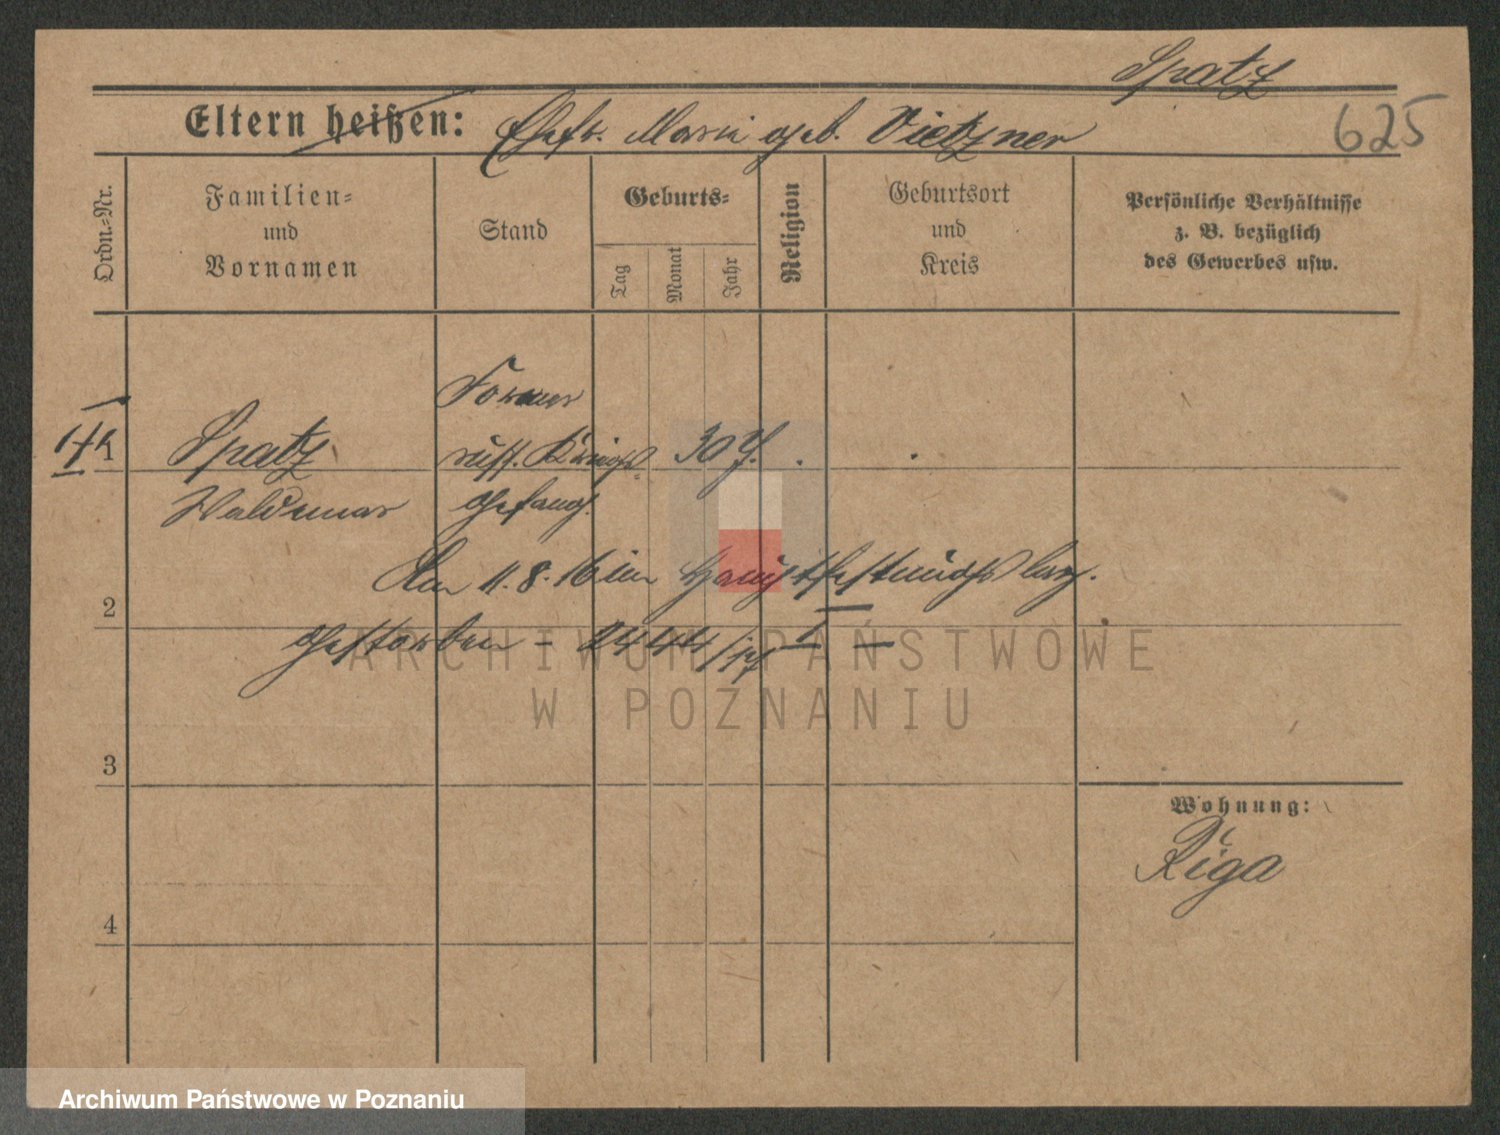 Spatz
625
Eltern heißen: Ehefr. Marie geb. Vietzner
Ordn.-Nr.
Familien-
und
Vornamen
Stand
Geburts-
Tag
Monat
Jahr
Religion
Geburtsort
und
Kreis
Persönliche Verhältnisse
z. B. bezüglich
des Gewerbes usw.
Former
1 Spatz russ. Kriegs 30 J.
Waldemar gefang.
Am 11.8.16 im Hauptfestungslaz.
2
gestorben - 2444/
3
Wohnung:
Riga
4
ARCHIWUM PAŃSTWOWE
W POZNANIU
Archiwum Państwowe w Poznaniu